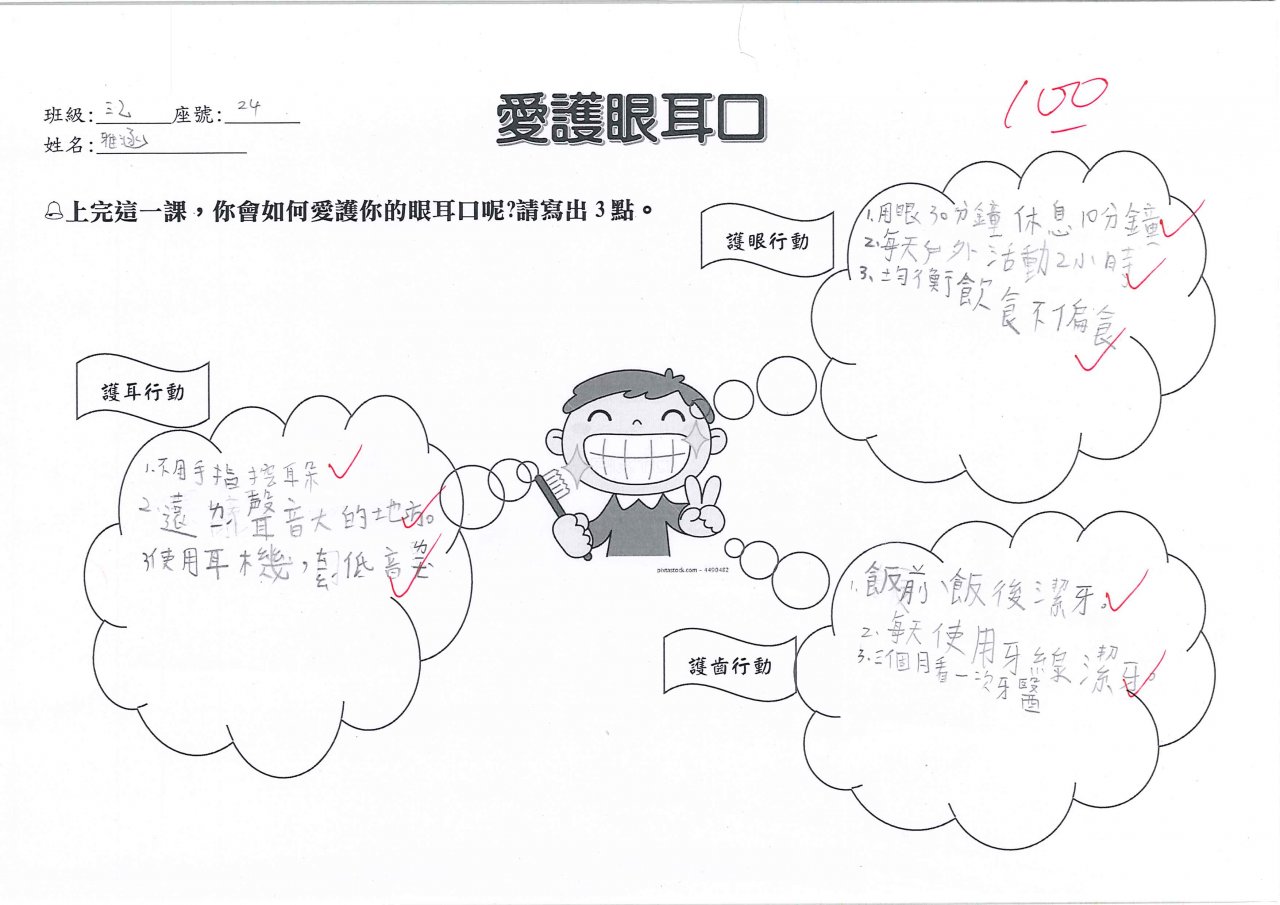 愛護眼耳口
100
班級:三乙 座號:24
姓名:雅涵
上完這一課，你會如何愛護你的眼耳口呢?請寫出3點。
護眼行動
1.用眼30分鐘休息10分鐘
2.每天戶外活動2小時
3.均衡飲食不偏食
護耳行動
1.不用手指挖耳朵
2.遠ㄌㄧˊ聲音大的地方。
3.使用耳機，調低音ㄌㄧㄤˋ
pixtastock.com - 4490482
護齒行動
1.飯前、飯後潔牙。
2.每天使用牙線潔牙。
3.三個月看一次牙醫